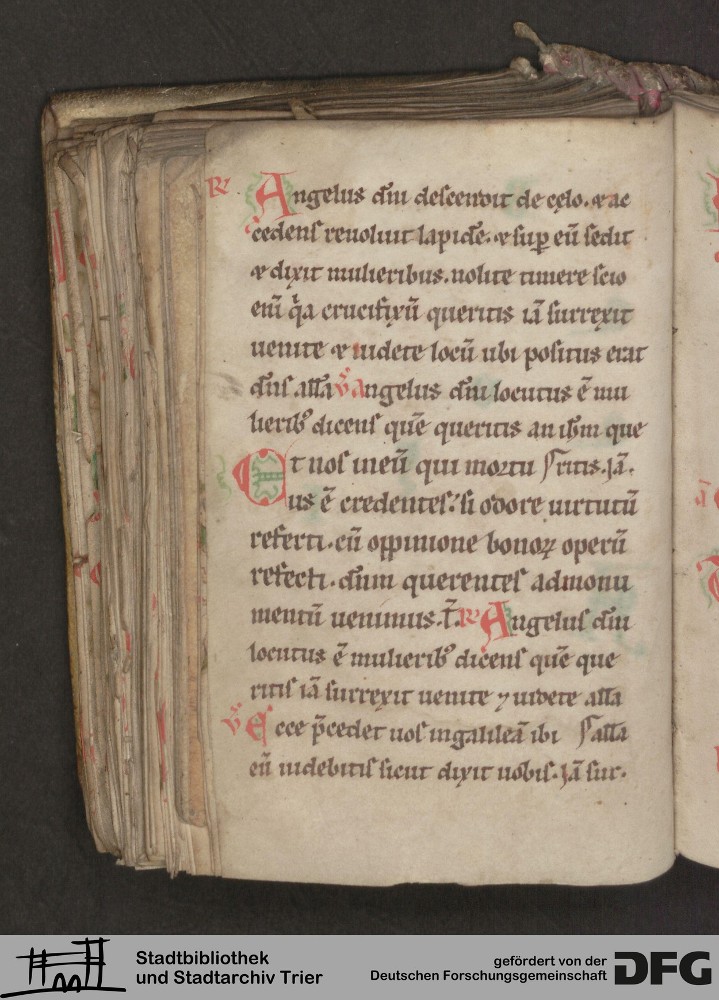 R̸ Angelus dn̄i descendit de cęlo. & ac
cedens reuoluit lapidē. & sup̱ eū sedit
& dixit mulieribus. nolite timere scio
eni̅ q̇a crucifixū queritis iā surrexit
uenite & uidete locū ubi positus erat
dn̄s all̄a v̸ Angelus dn̄i locutus ē mu
lierib⁹ dicens quē queritis an ihm̄ que
Et nos in eū qui mortu ſritis. Jā.
us ē credentes. si odore uirtutū
referti. cū oppinione bonoꝝ operū
refecti. dn̄m querentes ad monu
mentū uenimus. T̄. R̸ Angelus dn̄i
locutus ē mulierib⁹ dicens quē que
ritis iā surrexit uenite ⁊ uidete all̄a
v̸ Ecce p̄cedet uos in galileā ibi ſall̄a
eū uidebitis sicut dixit uobis. Jā sur.
Stadtbibliothek
und Stadtarchiv Trier
gefördert von der
Deutschen Forschungsgemeinschaft
DFG